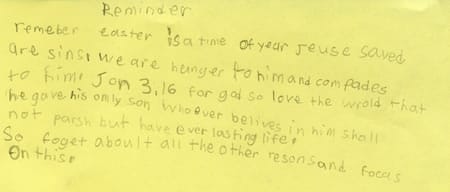 Reminder
remeber easter is a time of year jeuse saved
are sins, we are heunger to him and comfades
to him, Jon 3,16 for god so love the wrold that
he gave his omly son whoever belives in him shall
not parsh but have ever lasting life,
So foget aboult all the other resons and focas
On this,